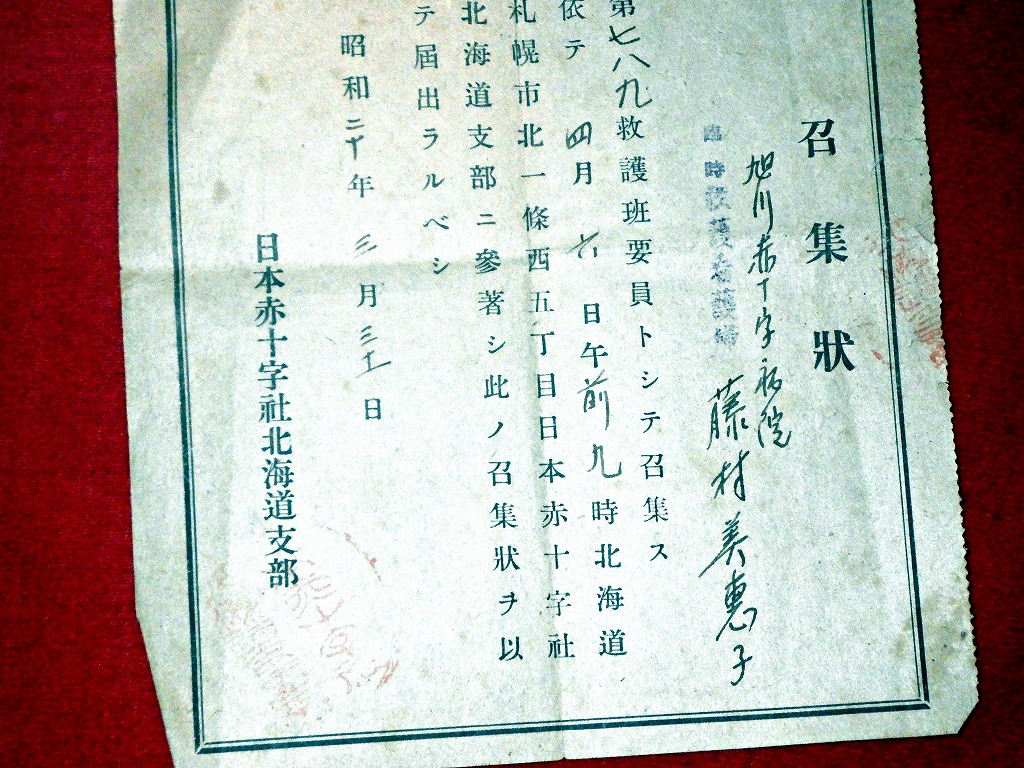 召集狀
旭川赤十字病院
臨時救護看護婦
藤村美惠子
第七八九救護班要員トシテ召集ス
依テ四月六日午前九時北海道
札幌市北一條西五丁目日本赤十字社
北海道支部ニ參著シ此ノ召集狀ヲ以
テ屆出ラルベシ
昭和二十年三月三十一日
日本赤十字社北海道支部